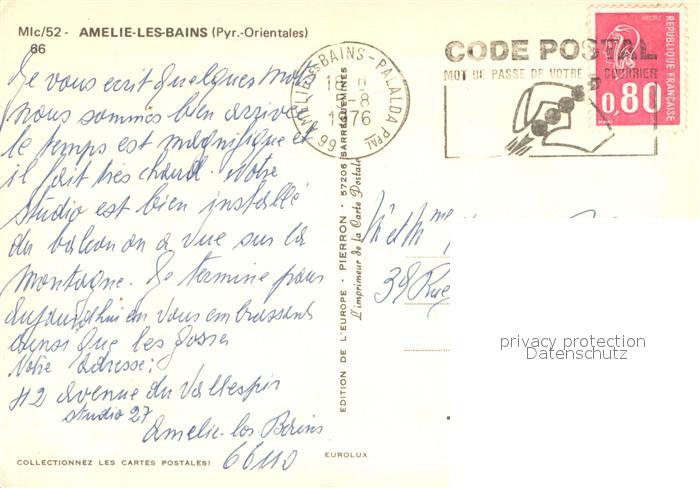 Mlc/52 - AMELIE-LES-BAINS (Pyr.-Orientales)
66
Je vous ecrit quelques mots
nous sommes bien arrivée
le temps est magnifique et
il fait très chaud. Notre
studio est bien installé
du balcon on a vue sur la
montagne. Je termine pour
aujourd'hui en vous embrassant
ainsi que les gosses
Notre adresse:
42 avenue du Vallespir
studio 27
Amelie-les Bains
66110
COLLECTIONNEZ LES CARTES POSTALES!
EUROLUX
EDITION DE L'EUROPE - PIERRON - 57206 SARREGUEMINES
L'imprimeur de la Carte Postale
66 AMELIE-LES-BAINS-PALALDA PPAL
1976
CODE POSTAL
MOT DE PASSE DE VOTRE COURRIER
POSTES
REPUBLIQUE FRANÇAISE
0,80
Mr et Mme
39 Rue
privacy protection
Datenschutz